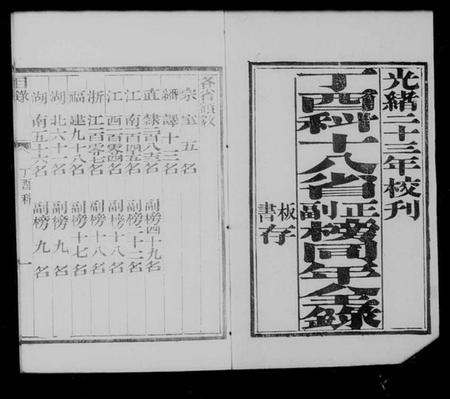 光緒二十三年校刊
丁酉科十八省正副榜同年全錄
板存
書
各省額數
宗室五名
繙譯十三名
直隸二百八十名 副榜四十九名
江南一百四十五名 副榜二十二名
江西一百零四名 副榜十八名
浙江一百零七名 副榜十八名
福建九十八名 副榜十七名
湖北六十一名 副榜九名
湖南五十六名 副榜九名
目錄 丁酉科 一